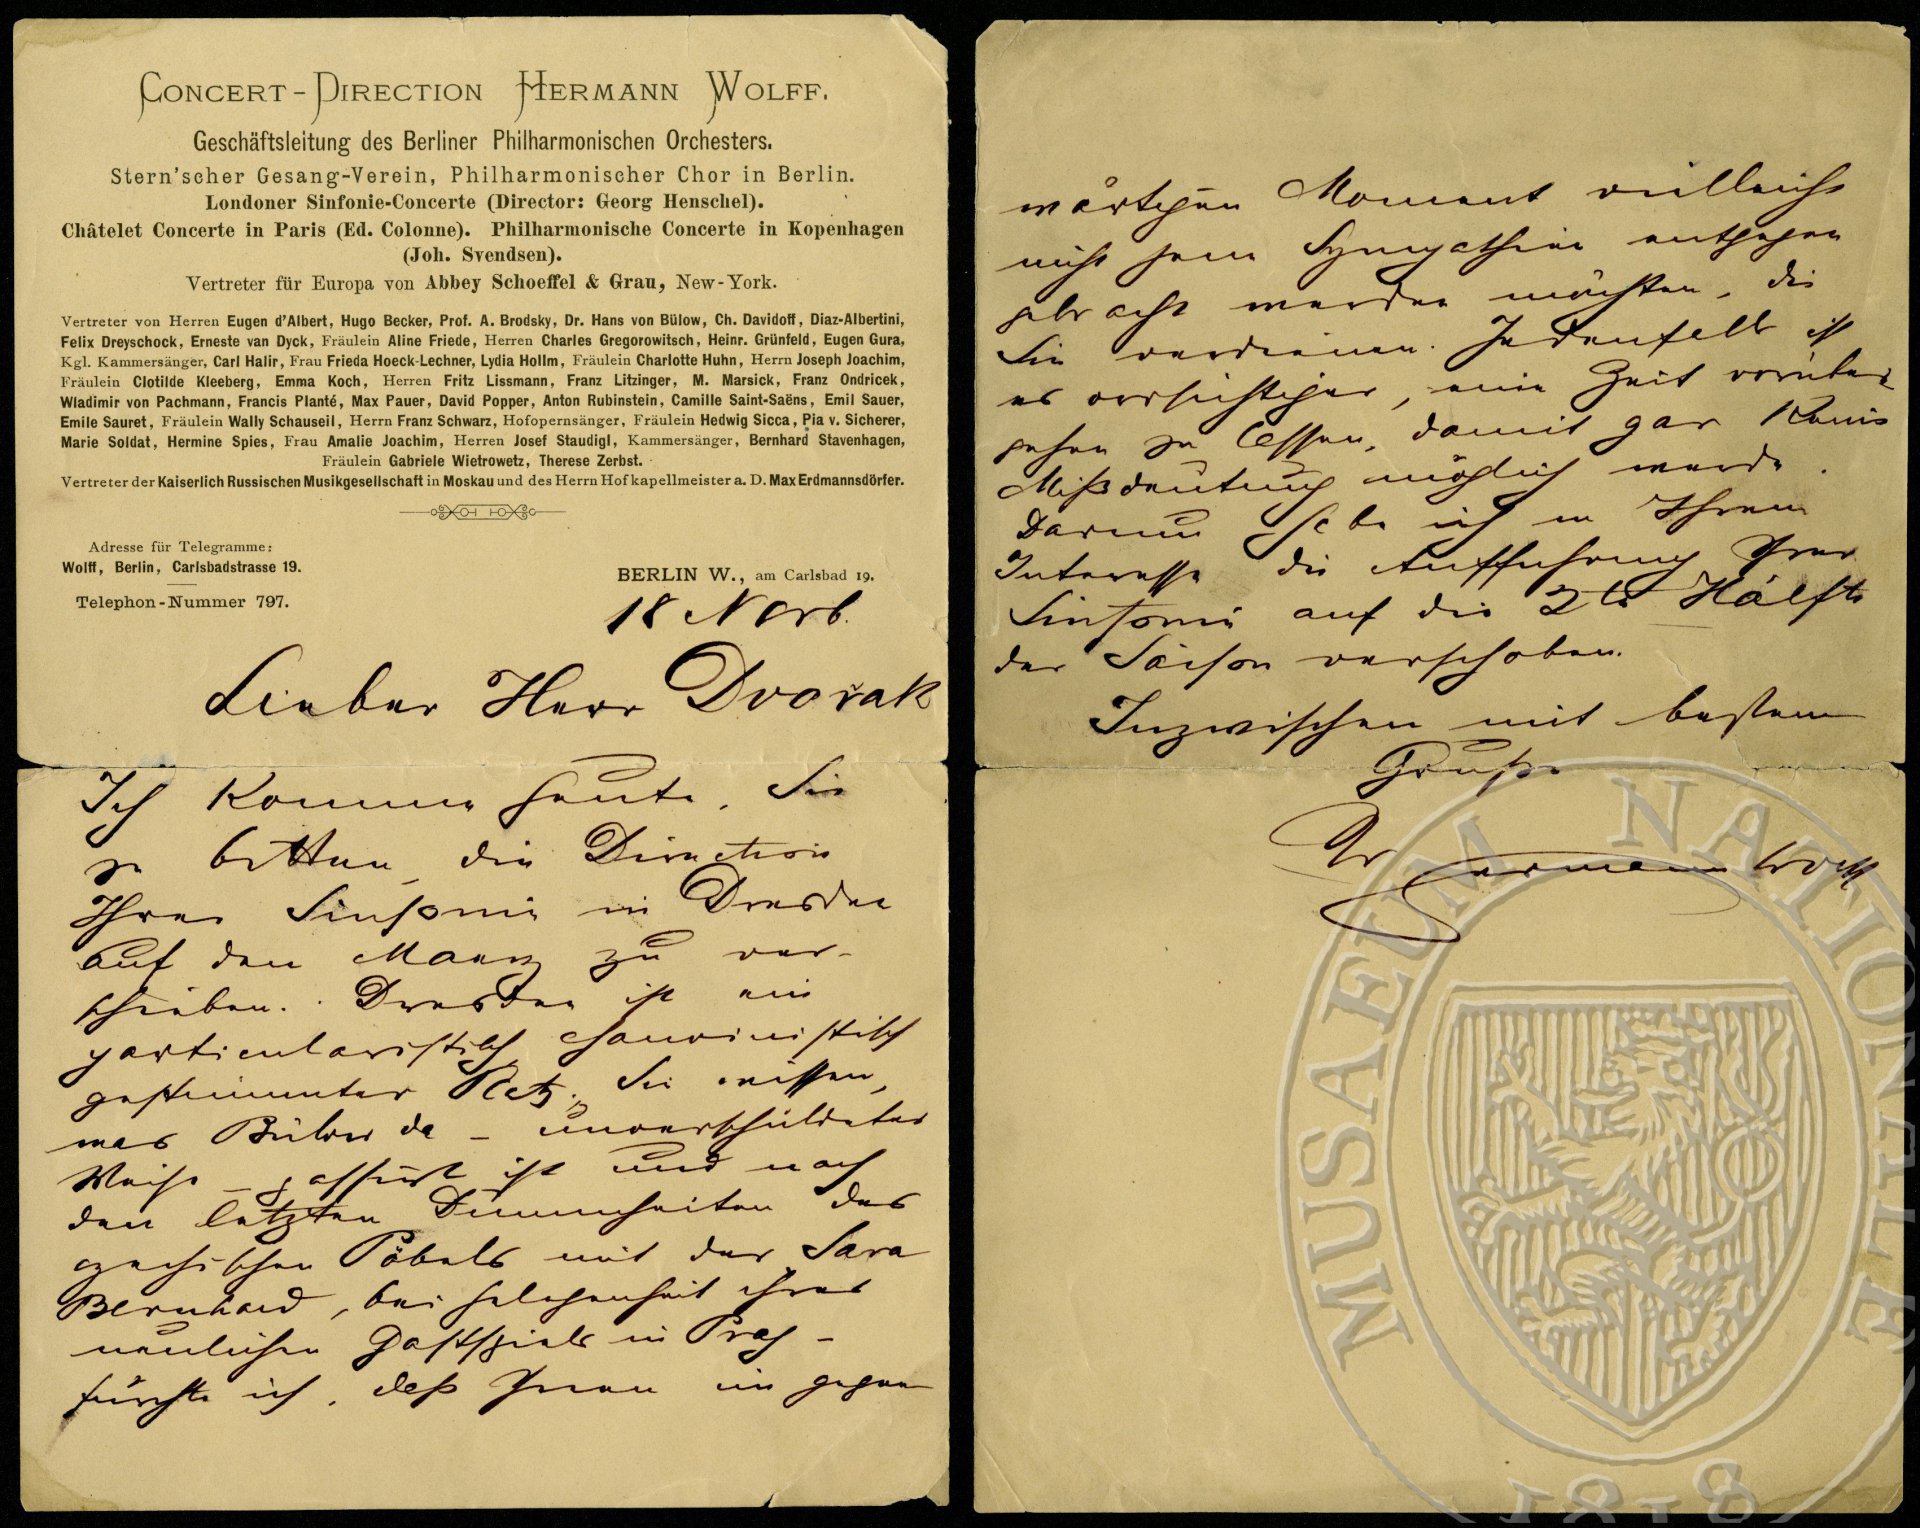 CONCERT-DIRECTION HERMANN WOLFF.
Geschäftsleitung des Berliner Philharmonischen Orchesters.
Stern'scher Gesang-Verein, Philharmonischer Chor in Berlin.
Londoner Sinfonie-Concerte (Director: Georg Henschel).
Châtelet Concerte in Paris (Ed. Colonne). Philharmonische Concerte in Kopenhagen
(Joh. Svendsen).
Vertreter für Europa von Abbey Schoeffel & Grau, New-York.
Vertreter von Herren Eugen d'Albert, Hugo Becker, Prof. A. Brodsky, Dr. Hans von Bülow, Ch. Davidoff, Diaz-Albertini,
Felix Dreyschock, Erneste van Dyck, Fräulein Aline Friede, Herren Charles Gregorowitsch, Heinr. Grünfeld, Eugen Gura,
Kgl. Kammersänger, Carl Halir, Frau Frieda Hoeck-Lechner, Lydia Hollm, Fräulein Charlotte Huhn, Herrn Joseph Joachim,
Fräulein Clotilde Kleeberg, Emma Koch, Herren Fritz Lissmann, Franz Litzinger, M. Marsick, Franz Ondricek,
Wladimir von Pachmann, Francis Planté, Max Pauer, David Popper, Anton Rubinstein, Camille Saint-Saëns, Emil Sauer,
Emile Sauret, Fräulein Wally Schauseil, Herrn Franz Schwarz, Hofopernsänger, Fräulein Hedwig Sicca, Pia v. Sicherer,
Marie Soldat, Hermine Spies, Frau Amalie Joachim, Herren Josef Staudigl, Kammersänger, Bernhard Stavenhagen,
Fräulein Gabriele Wietrowetz, Therese Zerbst.
Vertreter der Kaiserlich Russischen Musikgesellschaft in Moskau und des Herrn Hofkapellmeister a. D. Max Erdmannsdörfer.
Adresse für Telegramme:
Wolff, Berlin, Carlsbadstrasse 19.
Telephon-Nummer 797.
BERLIN W., am Carlsbad 19.
18 Novb.
Lieber Herr Dvořak
Ich komme heute, Sie
zu bitten, die Direction
Ihrer Sinfonie in Dresden
auf den Maerz zu ver-
schieben. Dresden ist ein
particularistisch, chauvinistisch
gestimmter Platz. Sie wissen,
was Bülow da – unverschuldeter
Weise – passirt ist und nach
den letzten Dummheiten des
czechischen Pöbels mit der Sara
Bernhard, bei Gelegenheit ihres
neulichen Gastspiels in Prag –
fürchte ich, daß Ihnen im gegen
wärtigen Moment vielleicht
nicht jene Sympathien entgegen
gebracht werden möchten, die
Sie verdienen. Jedenfalls ist
es vorsichtiger, eine Zeit vorüber
gehen zu lassen, damit gar keine
Mißdeutung möglich werde.
Darum habe ich in Ihrem
Interesse die Aufführung Ihrer
Sinfonie auf die 2te Hälfte
der Saison verschoben.
Inzwischen mit bestem
Gruße
Ihr Hermann Wolff
MUSAEUM NATIONALE
1818